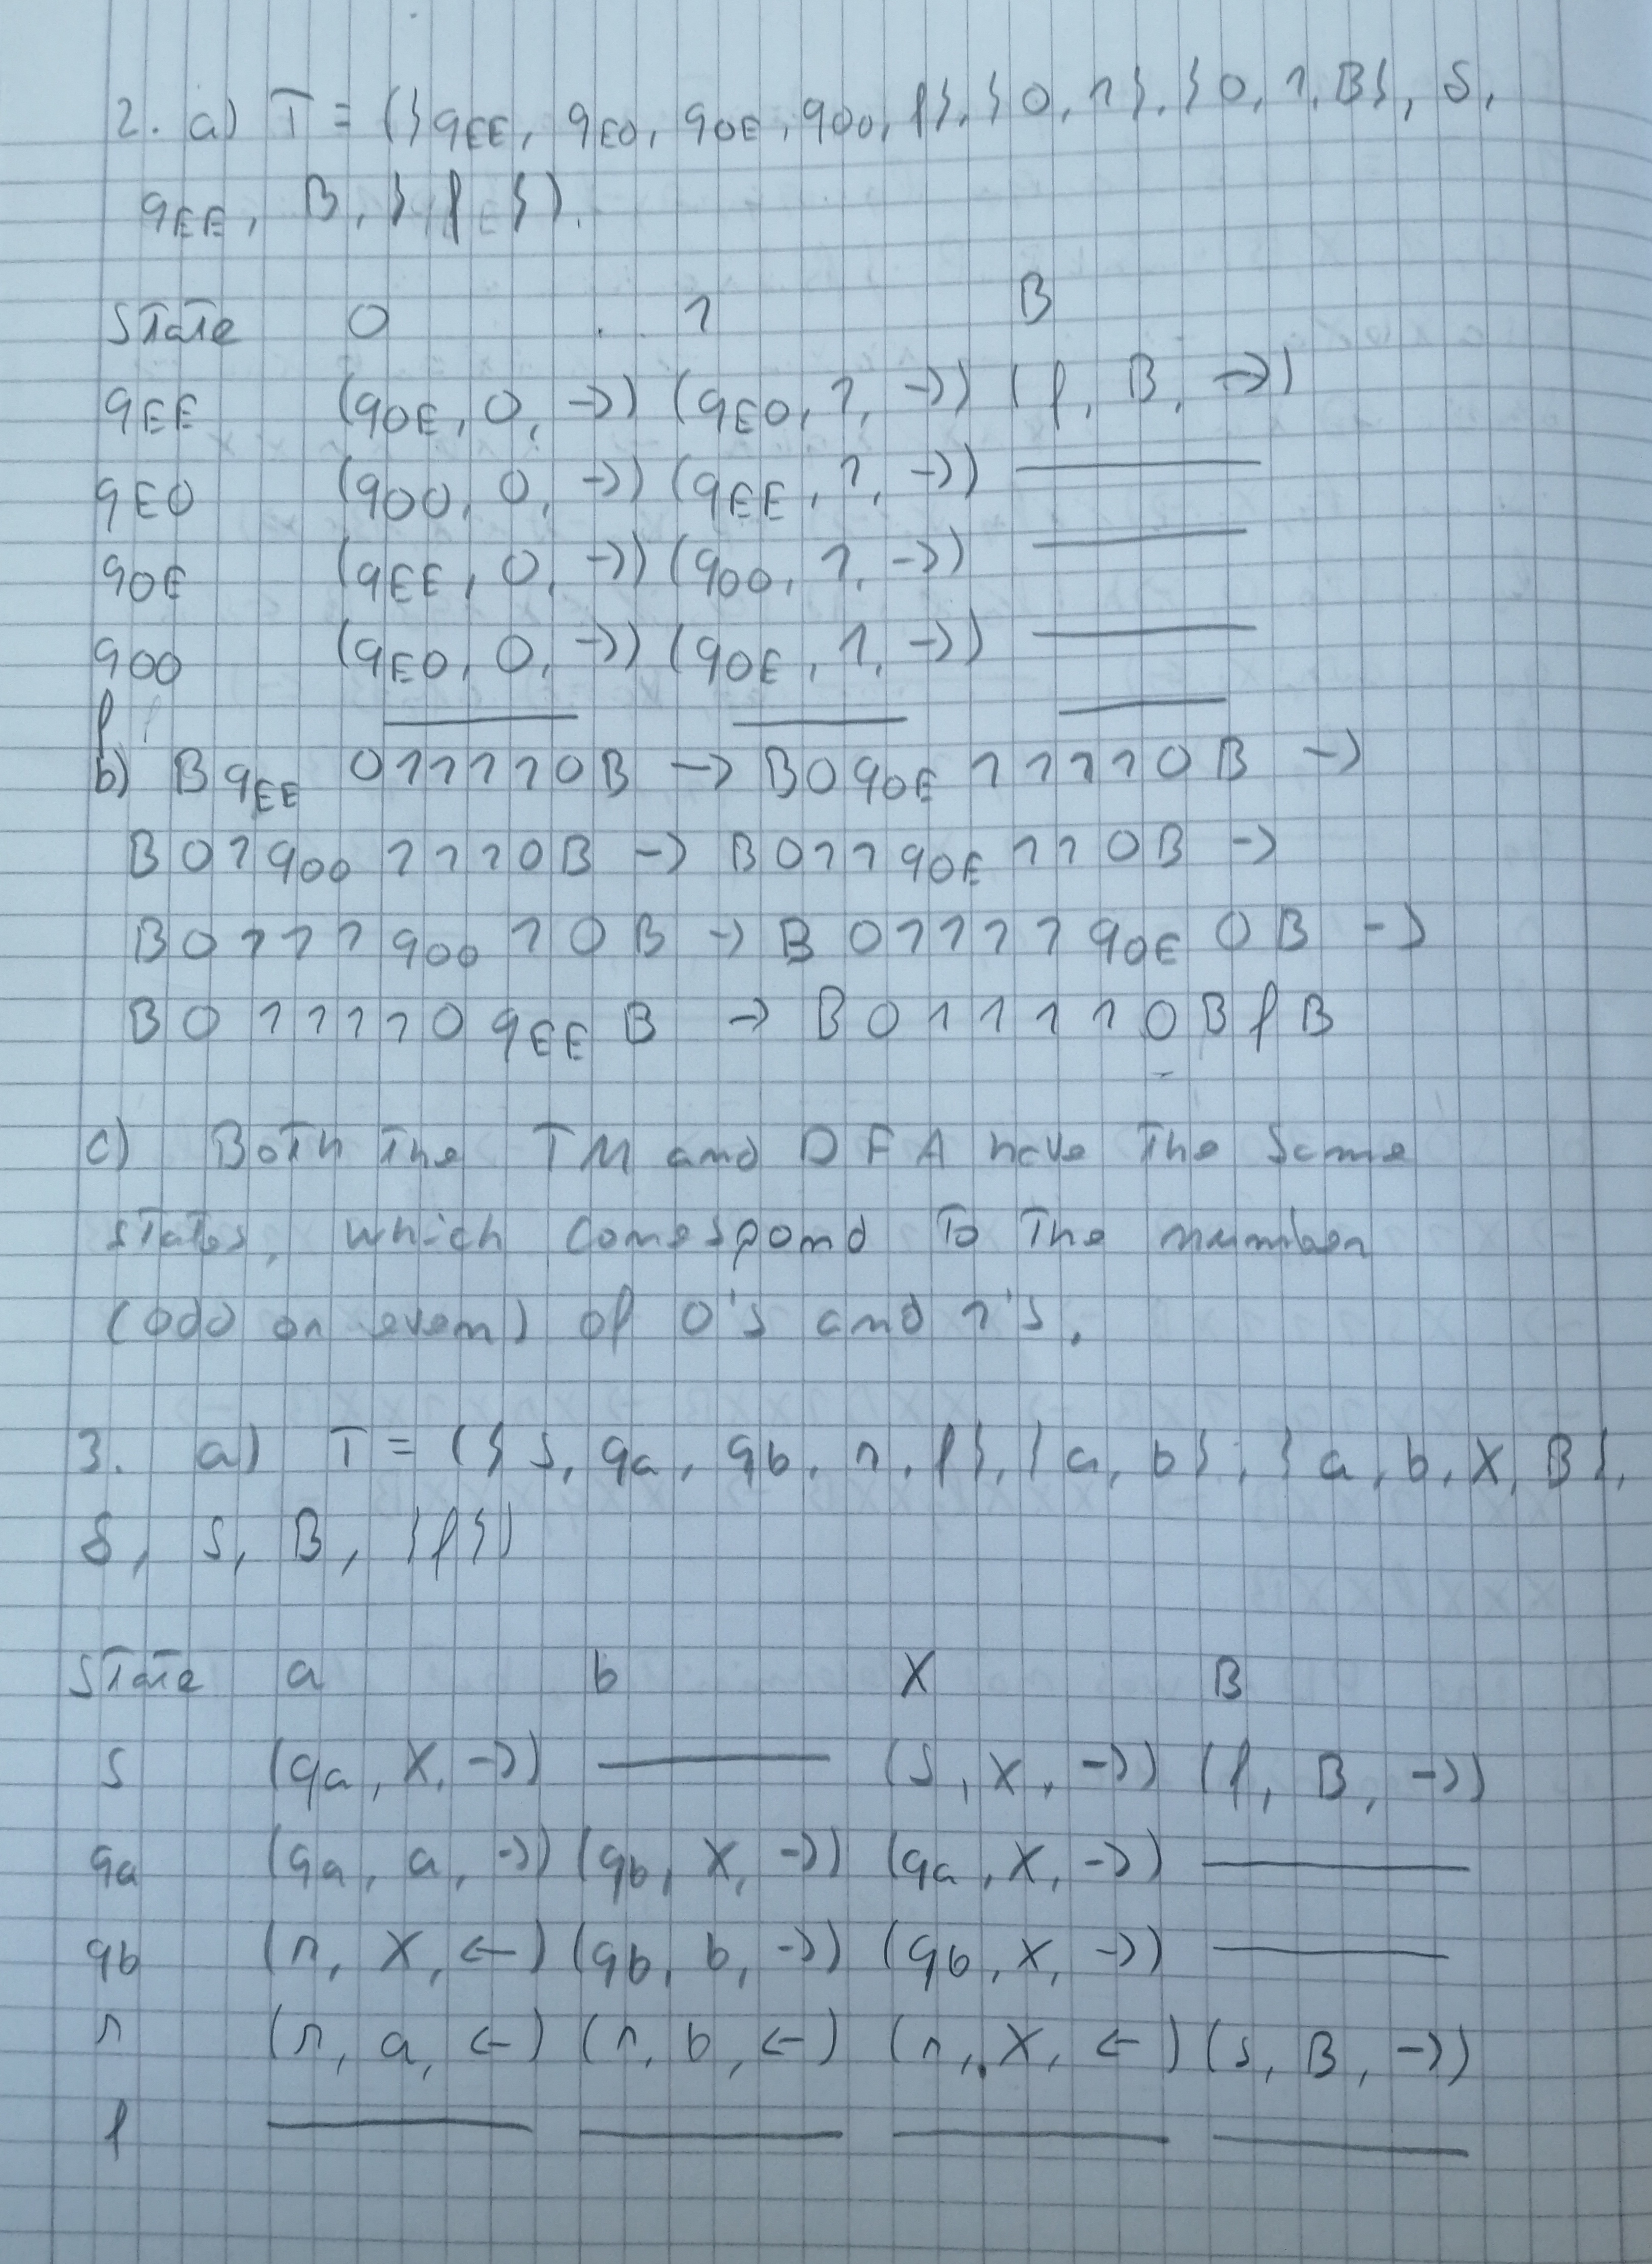 2. a) T = ({qEE, qEO, qOE, qOO, f}, {0, 1}, {0, 1, B}, δ,
qEE, B, {f}).
State 0 1 B
qEE (qOE, 0, →) (qEO, 1, →) (f, B, →)
qEO (qOO, 0, →) (qEE, 1, →) —
qOE (qEE, 0, →) (qOO, 1, →) —
qOO (qEO, 0, →) (qOE, 1, →) —
f — — —
b) B qEE 011110B → B0 qOE 11110B →
B01 qOO 1110B → B011 qOE 110B →
B0111 qOO 10B → B01111 qOE 0B →
B011110 qEE B → B011110B f B
c) Both the TM and DFA have the same
states, which correspond to the number
(odd or even) of 0's and 1's.
3. a) T = ({s, qa, qb, r, f}, {a, b}, {a, b, X, B},
δ, s, B, {f})
State a b X B
s (qa, X, →) — (s, X, →) (f, B, →)
qa (qa, a, →) (qb, X, →) (qa, X, →) —
qb (r, X, ←) (qb, b, →) (qb, X, →) —
r (r, a, ←) (r, b, ←) (r, X, ←) (s, B, →)
f — — — —